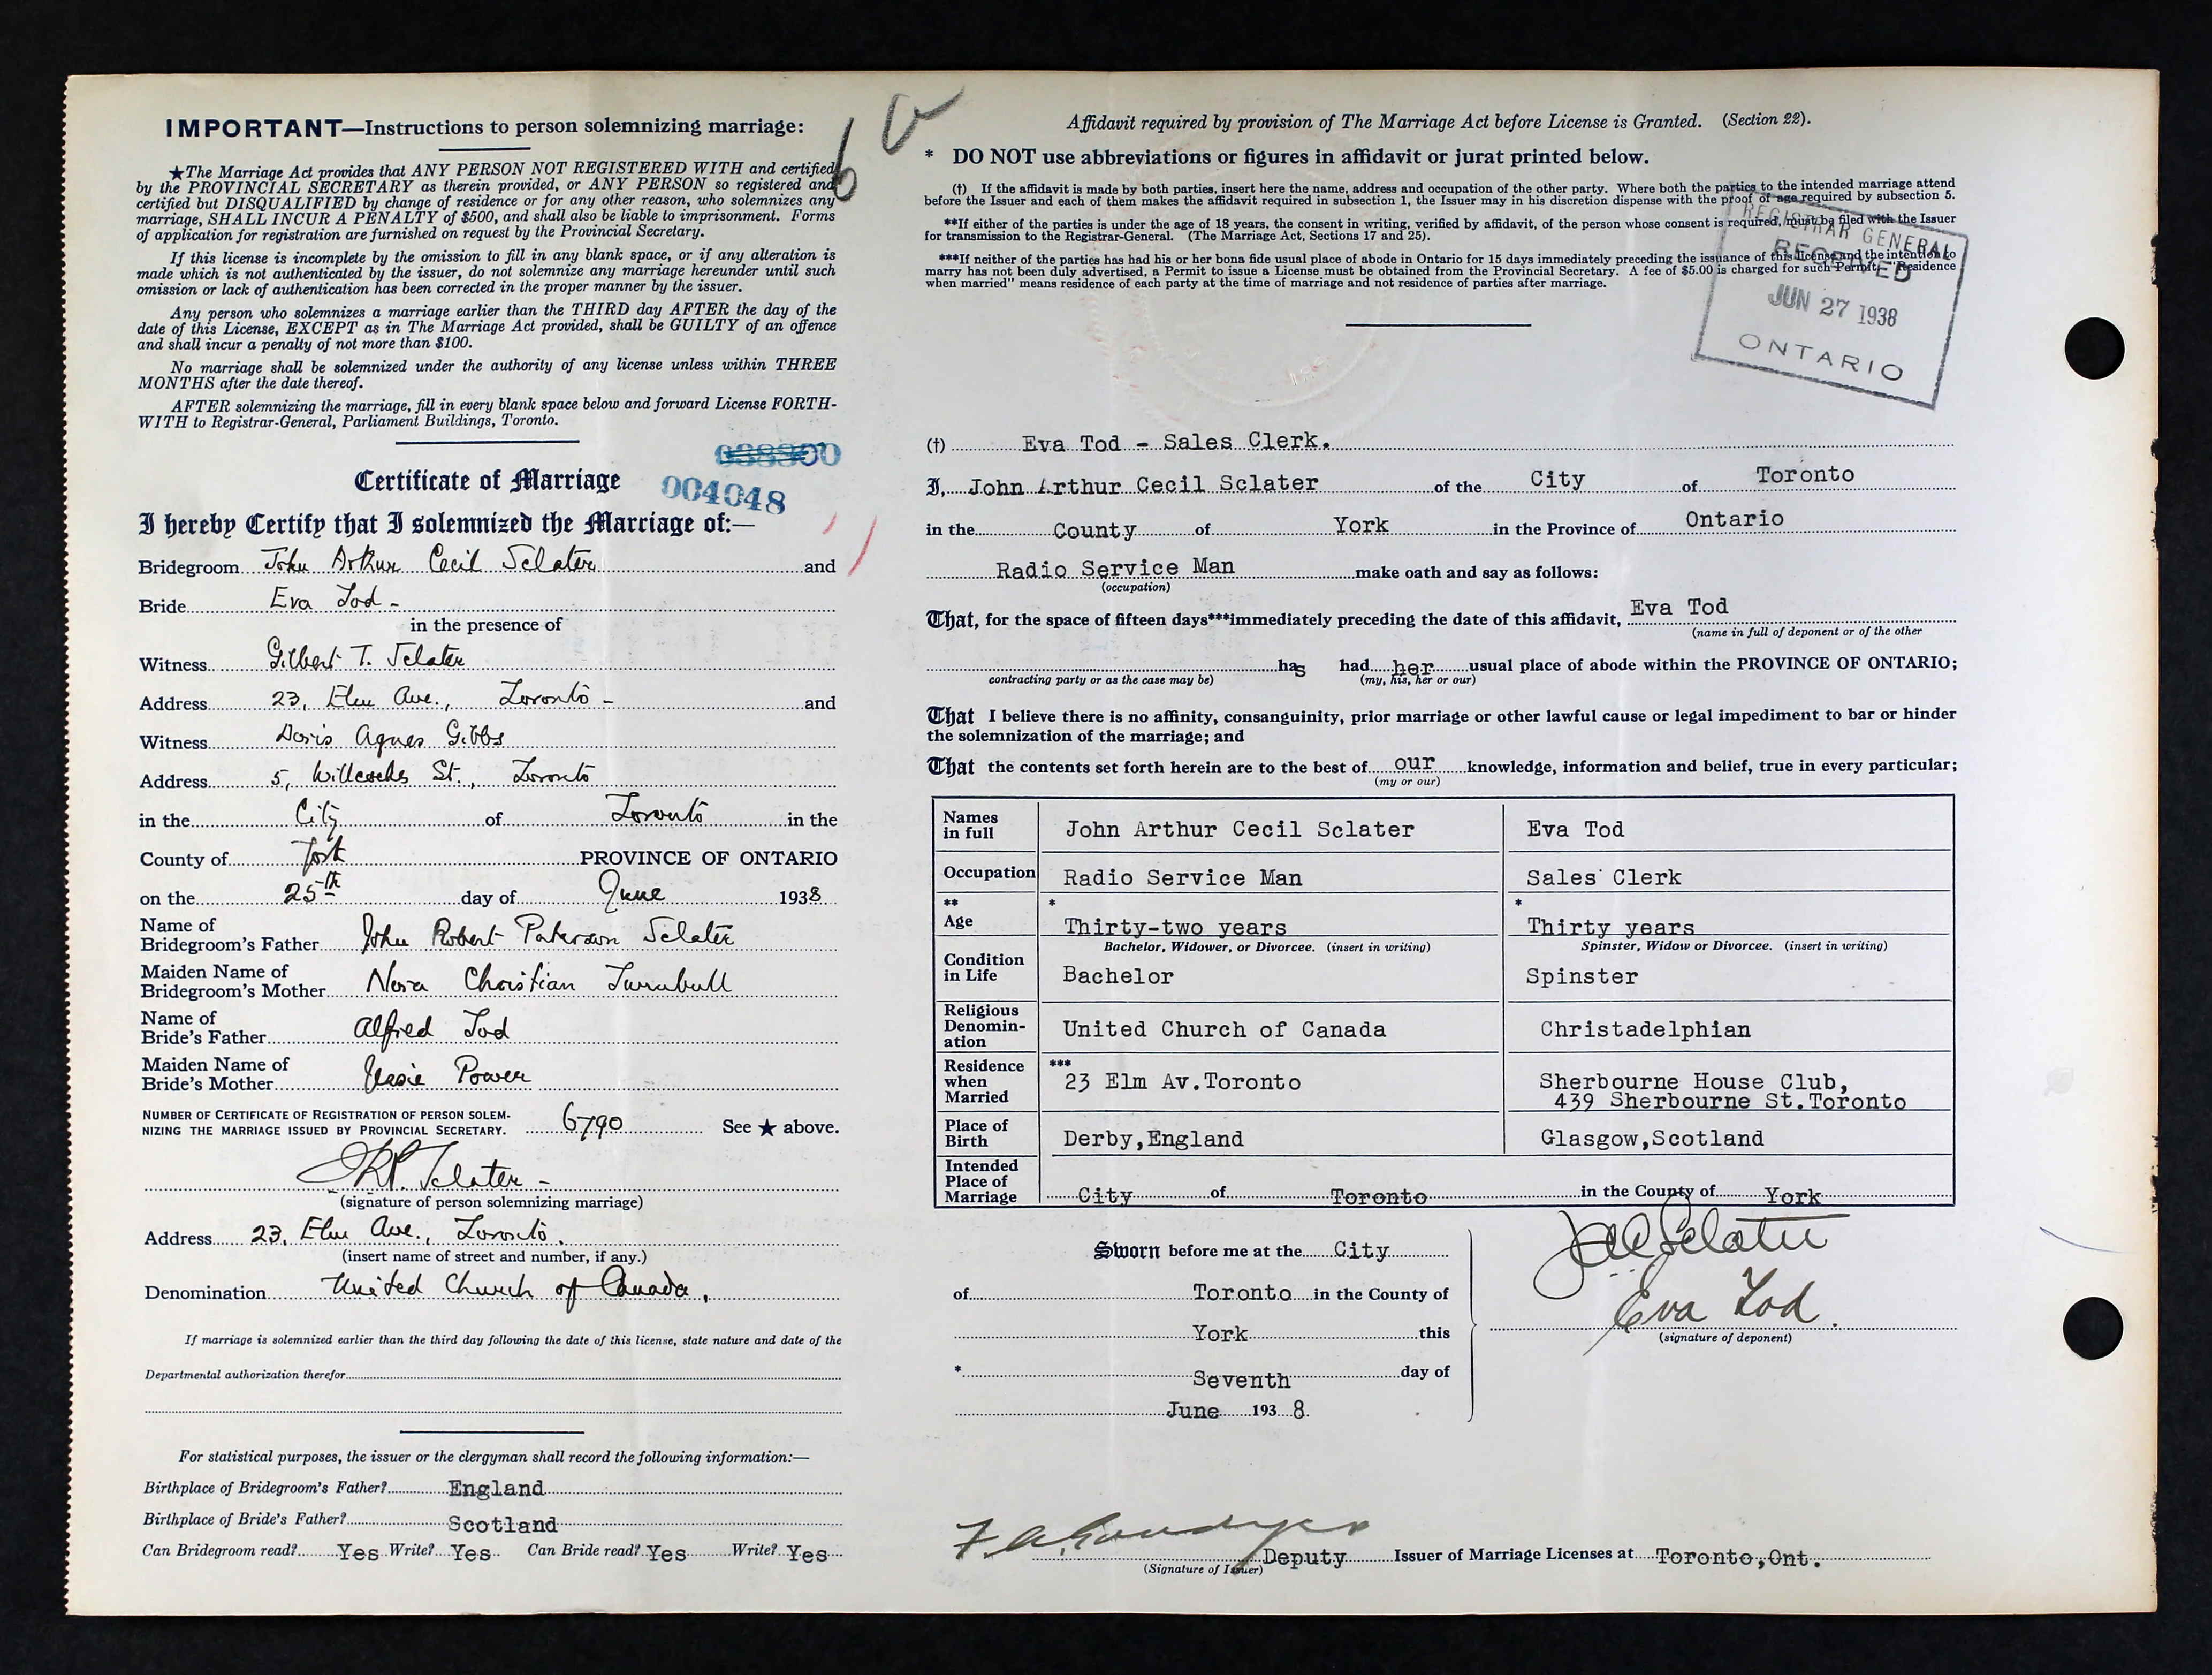 IMPORTANT—Instructions to person solemnizing marriage:
★The Marriage Act provides that ANY PERSON NOT REGISTERED WITH and certified
by the PROVINCIAL SECRETARY as therein provided, or ANY PERSON so registered and
certified but DISQUALIFIED by change of residence or for any other reason, who solemnizes any
marriage, SHALL INCUR A PENALTY of $500, and shall also be liable to imprisonment. Forms
of application for registration are furnished on request by the Provincial Secretary.
If this license is incomplete by the omission to fill in any blank space, or if any alteration is
made which is not authenticated by the issuer, do not solemnize any marriage hereunder until such
omission or lack of authentication has been corrected in the proper manner by the issuer.
Any person who solemnizes a marriage earlier than the THIRD day AFTER the day of the
date of this License, EXCEPT as in The Marriage Act provided, shall be GUILTY of an offence
and shall incur a penalty of not more than $100.
No marriage shall be solemnized under the authority of any license unless within THREE
MONTHS after the date thereof.
AFTER solemnizing the marriage, fill in every blank space below and forward License FORTH-
WITH to Registrar-General, Parliament Buildings, Toronto.
Certificate of Marriage 004048
I hereby Certify that I solemnized the Marriage of:—
Bridegroom John Arthur Cecil Sclater and
Bride Eva Tod -
in the presence of
Witness Gilbert T. Sclater
Address 23, Elm Ave., Toronto - and
Witness Doris Agnes Gibbs
Address 5, Willcocks St., Toronto
in the City of Toronto in the
County of York PROVINCE OF ONTARIO
on the 25th day of June 1938
Name of
Bridegroom's Father John Robert Paterson Sclater
Maiden Name of
Bridegroom's Mother Nora Christian Turnbull
Name of
Bride's Father Alfred Tod
Maiden Name of
Bride's Mother Jessie Power
NUMBER OF CERTIFICATE OF REGISTRATION OF PERSON SOLEM-
NIZING THE MARRIAGE ISSUED BY PROVINCIAL SECRETARY. 6790 See ★ above.
JRP. Sclater -
(signature of person solemnizing marriage)
Address 23, Elm Ave., Toronto.
(insert name of street and number, if any.)
Denomination United Church of Canada,
If marriage is solemnized earlier than the third day following the date of this license, state nature and date of the
Departmental authorization therefor
For statistical purposes, the issuer or the clergyman shall record the following information:—
Birthplace of Bridegroom's Father? England
Birthplace of Bride's Father? Scotland
Can Bridegroom read? Yes Write? Yes Can Bride read? Yes Write? Yes
Affidavit required by provision of The Marriage Act before License is Granted. (Section 22).
* DO NOT use abbreviations or figures in affidavit or jurat printed below.
(†) If the affidavit is made by both parties, insert here the name, address and occupation of the other party. Where both the parties to the intended marriage attend
before the Issuer and each of them makes the affidavit required in subsection 1, the Issuer may in his discretion dispense with the proof of age required by subsection 5.
**If either of the parties is under the age of 18 years, the consent in writing, verified by affidavit, of the person whose consent is required, must be filed with the Issuer
for transmission to the Registrar-General. (The Marriage Act, Sections 17 and 25).
***If neither of the parties has had his or her bona fide usual place of abode in Ontario for 15 days immediately preceding the issuance of this license and the intention to
marry has not been duly advertised, a Permit to issue a License must be obtained from the Provincial Secretary. A fee of $5.00 is charged for such Permit. "Residence
when married" means residence of each party at the time of marriage and not residence of parties after marriage.
REGISTRAR GENERAL
RECEIVED
JUN 27 1938
ONTARIO
(†) Eva Tod - Sales Clerk.
I, John Arthur Cecil Sclater of the City of Toronto
in the County of York in the Province of Ontario
Radio Service Man make oath and say as follows:
(occupation)
That, for the space of fifteen days***immediately preceding the date of this affidavit, Eva Tod
(name in full of deponent or of the other
has had her usual place of abode within the PROVINCE OF ONTARIO;
contracting party or as the case may be) (my, his, her or our)
That I believe there is no affinity, consanguinity, prior marriage or other lawful cause or legal impediment to bar or hinder
the solemnization of the marriage; and
That the contents set forth herein are to the best of our knowledge, information and belief, true in every particular;
(my or our)
Names
in full John Arthur Cecil Sclater Eva Tod
Occupation Radio Service Man Sales Clerk
** * *
Age Thirty-two years Thirty years
Bachelor, Widower, or Divorcee. (insert in writing) Spinster, Widow or Divorcee. (insert in writing)
Condition
in Life Bachelor Spinster
Religious
Denomin-
ation United Church of Canada Christadelphian
Residence ***
when 23 Elm Av.Toronto Sherbourne House Club,
Married 439 Sherbourne St.Toronto
Place of
Birth Derby,England Glasgow,Scotland
Intended
Place of
Marriage City of Toronto in the County of York
JAC Sclater
Sworn before me at the City
Eva Tod.
of Toronto in the County of
(signature of deponent)
York this
* Seventh day of
June 1938.
Deputy Issuer of Marriage Licenses at Toronto,Ont.
(Signature of Issuer)